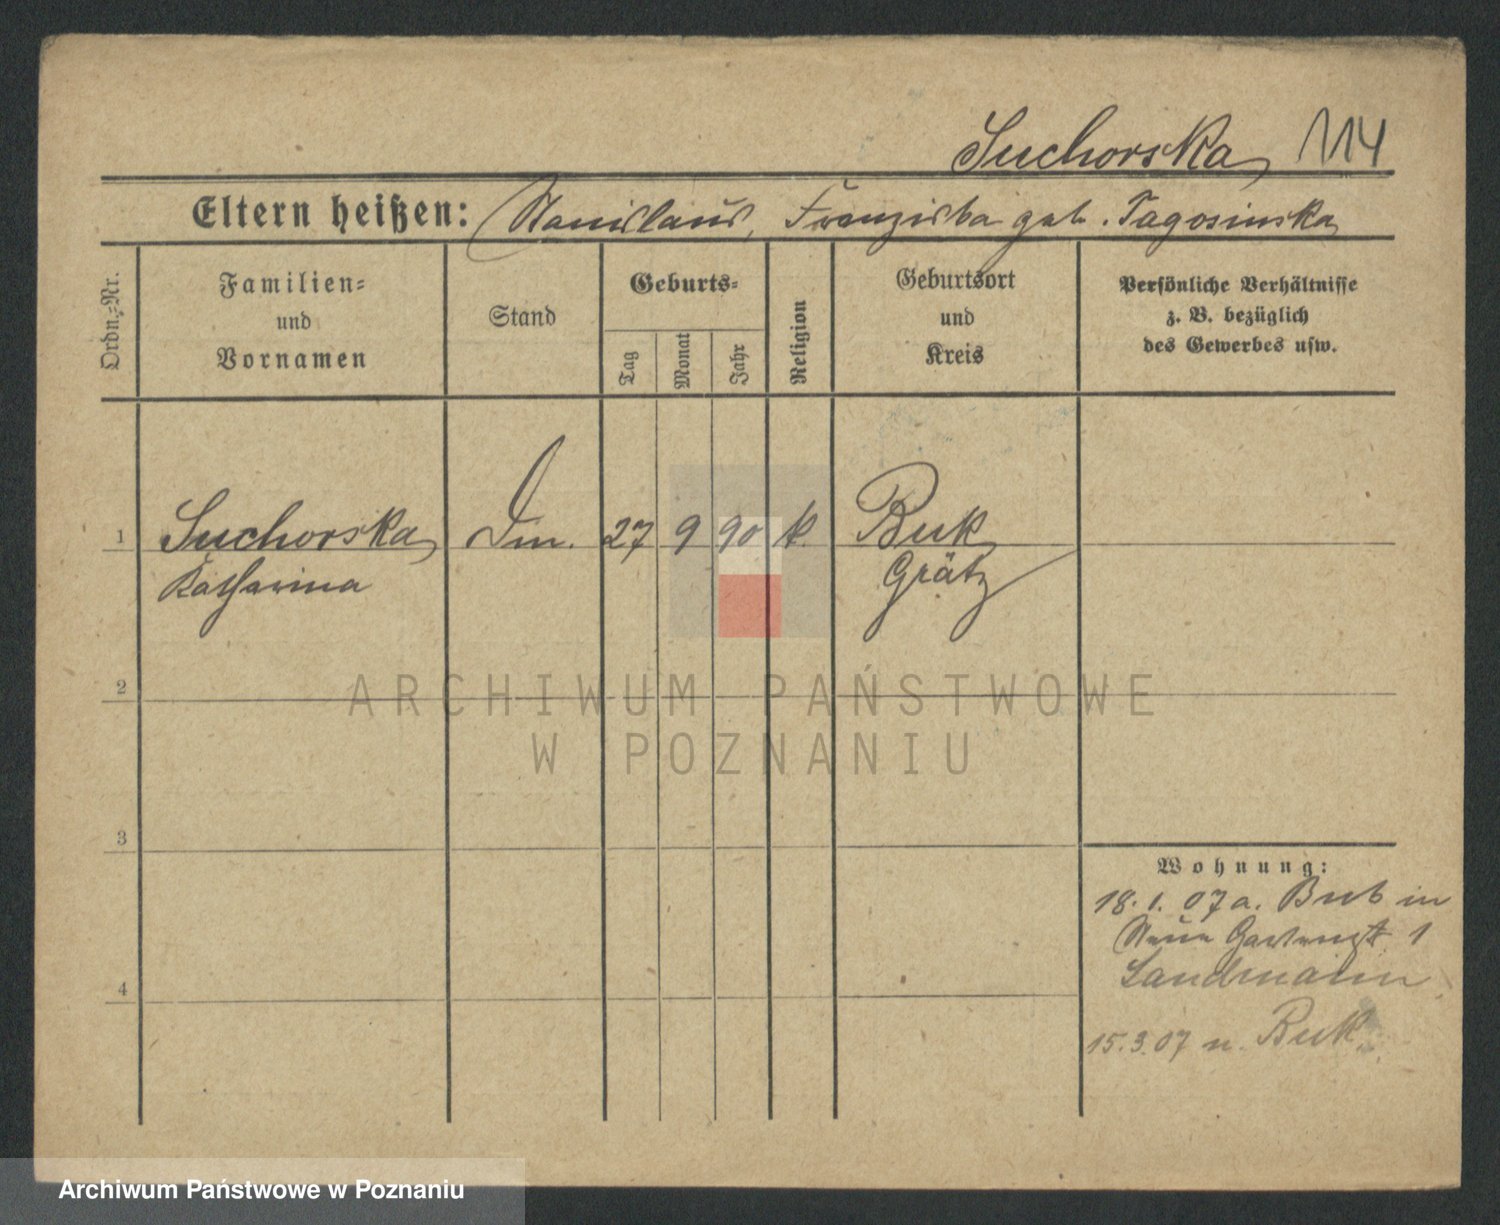 Suchorska 114
Eltern heißen: Stanislaus, Franziska geb. Tagosinska
Ordn.-Nr.
Familien-
und
Vornamen
Stand
Geburts-
Tag
Monat
Jahr
Religion
Geburtsort
und
Kreis
Persönliche Verhältnisse
z. B. bezüglich
des Gewerbes usw.
1 Suchorska 27 9 90 k. Buk
Katharina Grätz
2
3
4
Wohnung:
18. 1. 07 a. Buk in
Neue Gartenstr 1
Landmann
15. 3. 07 n. Buk
ARCHIWUM PAŃSTWOWE
W POZNANIU
Archiwum Państwowe w Poznaniu